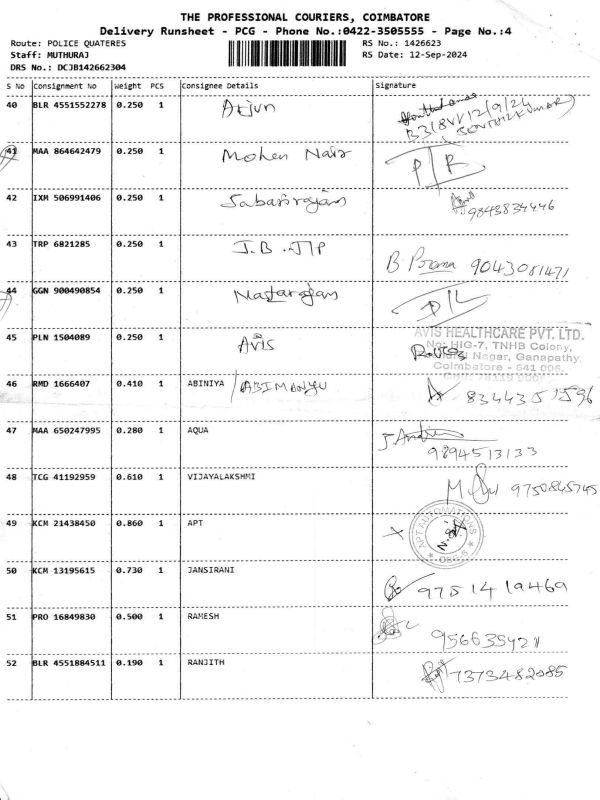 THE PROFESSIONAL COURIERS, COIMBATORE
Delivery Runsheet - PCG - Phone No.:0422-3505555 - Page No.:4
Route: POLICE QUATERES RS No.: 1426623
Staff: MUTHURAJ RS Date: 12-Sep-2024
DRS No.: DCJB142662304
S No Consignment No Weight PCS Consignee Details Signature
40 BLR 4551552278 0.250 1 Arjun
12/9/24
(SENTHILKUMAR)
41 MAA 864642479 0.250 1 Mohen Nair
42 IXM 506991406 0.250 1 Sabarirajan
9843834446
43 TRP 6821285 0.250 1 J.B. JTP B Prema 9043081471
44 GGN 900490854 0.250 1 Natarajan
45 PLN 1504089 0.250 1 Avis
AVIS HEALTHCARE PVT. LTD.
No: HIG-7, TNHB Colony,
Nagar, Ganapathy,
Coimbatore - 641 006.
46 RMD 1666407 0.410 1 ABINIYA / ABIMANYU 8344351596
47 MAA 650247995 0.280 1 AQUA
9894513133
48 TCG 41192959 0.610 1 VIJAYALAKSHMI 9750845745
49 KCM 21438450 0.860 1 APT
APT AUTOMATIONS
50 KCM 13195615 0.730 1 JANSIRANI 9751419469
51 PRO 16849830 0.500 1 RAMESH
52 BLR 4551884511 0.190 1 RANJITH 7373482085